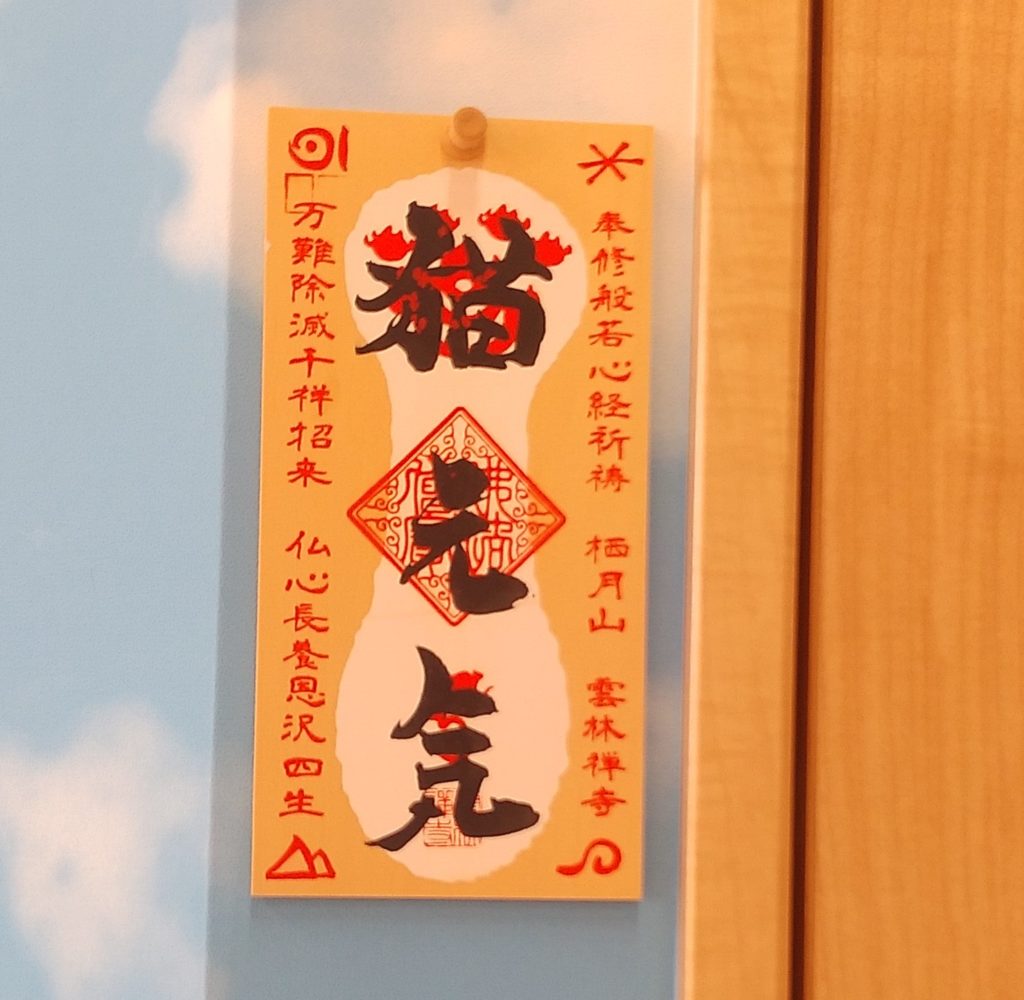 奉修般若心経祈祷 栖月山 雲林禅寺
猫元気
万難除滅千祥招来 仏心長養恩沢四生